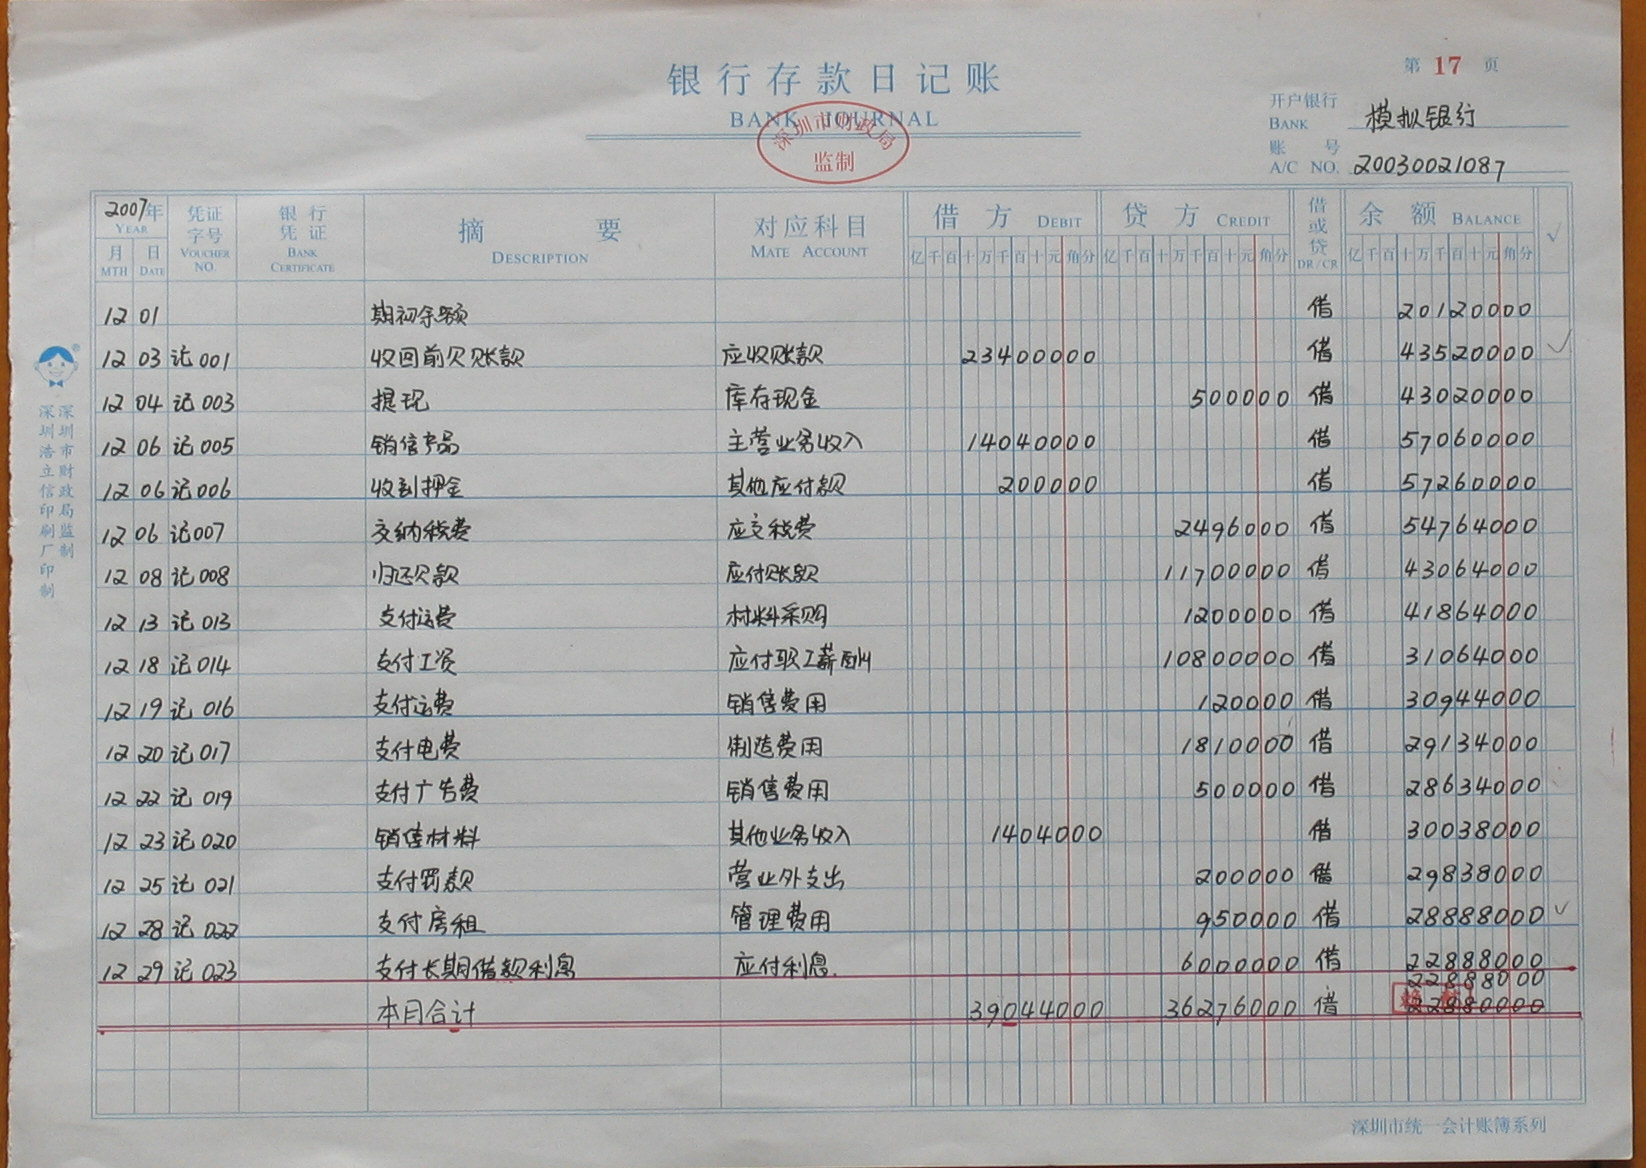 银行存款日记账
BANK JOURNAL
深圳市财政局
监制
第 17 页
开户银行
BANK 模拟银行
账 号
A/C NO. 20030021087
2007年 凭证 银行 摘 要 对应科目 借 方 DEBIT 贷 方 CREDIT 借或贷 余 额 BALANCE √
YEAR 字号 凭证 DESCRIPTION MATE ACCOUNT
月 日 VOUCHER BANK 亿千百十万千百十元角分 亿千百十万千百十元角分 DR/CR 亿千百十万千百十元角分
MTH DATE NO. CERTIFICATE
12 01 期初余额 借 20120000
12 03 记001 收回前欠账款 应收账款 23400000 借 43520000 √
12 04 记003 提现 库存现金 500000 借 43020000
12 06 记005 销售产品 主营业务收入 14040000 借 57060000
12 06 记006 收到押金 其他应付款 200000 借 57260000
12 06 记007 交纳税费 应交税费 2496000 借 54764000
12 08 记008 归还欠款 应付账款 11700000 借 43064000
12 13 记013 支付运费 材料采购 1200000 借 41864000
12 18 记014 支付工资 应付职工薪酬 10800000 借 31064000
12 19 记016 支付运费 销售费用 120000 借 30944000
12 20 记017 支付电费 制造费用 1810000 借 29134000
12 22 记019 支付广告费 销售费用 500000 借 28634000
12 23 记020 销售材料 其他业务收入 1404000 借 30038000
12 25 记021 支付罚款 营业外支出 200000 借 29838000
12 28 记022 支付房租 管理费用 950000 借 28888000 √
12 29 记023 支付长期借款利息 应付利息 6000000 借 22888000
22888000
本月合计 39044000 36276000 借 22880000
深圳市财政局监制
深圳浩立信印刷厂印制
深圳市统一会计账簿系列